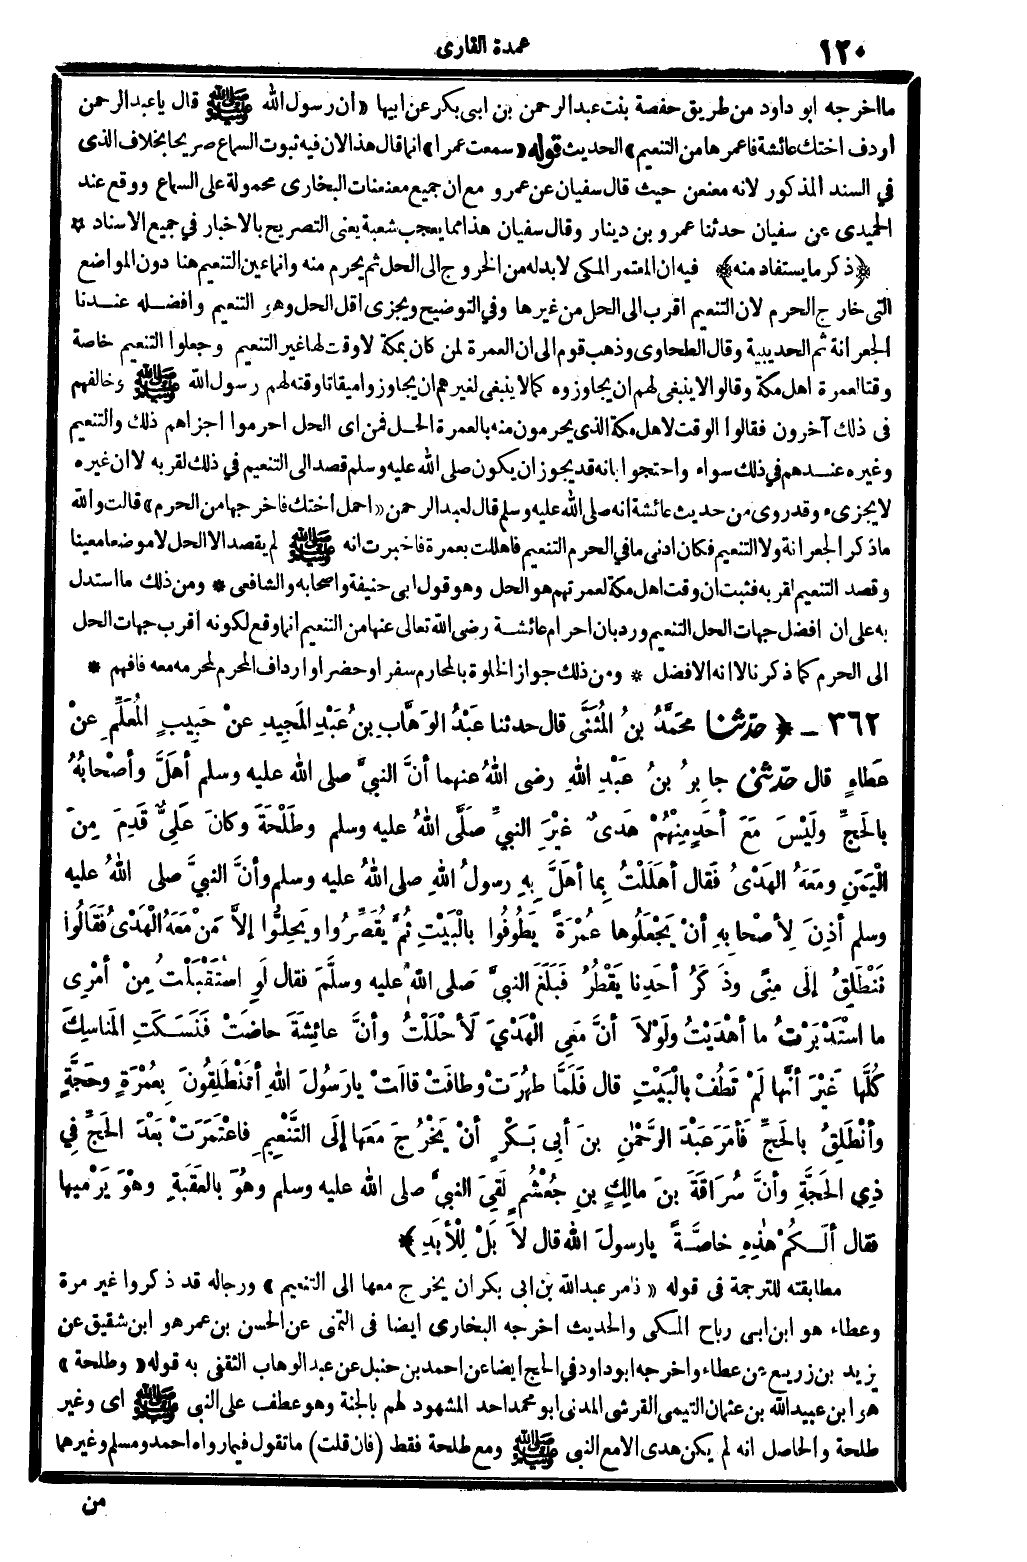 ١٢٠
عمدة القارى
ما اخرجه ابو داود من طريق حفصة بنت عبد الرحمن بن ابى بكر عن ابيها «ان رسول الله ﷺ قال يا عبد الرحمن
أردف اختك عائشة فاعمرها من التنعيم» الحديث قوله «سمعت عمرا» انما قال هذا لان فيه ثبوت السماع صريحا بخلاف الذى
في السند المذكور لانه معنعن حيث قال سفيان عن عمرو مع ان جميع معنعنات البخارى محمولة على السماع ووقع عند
الحميدى عن سفيان حدثنا عمرو بن دينار وقال سفيان هذا مما يعجب شعبة يعنى التصريح بالاخبار في جميع الاسناد *
﴿ذكر ما يستفاد منه﴾ فيه ان المعتمر المكى لا بد له من الخروج الى الحل ثم يحرم منه وانما عين التنعيم هنا دون المواضع
التى خارج الحرم لان التنعيم اقرب الى الحل من غيرها وفي التوضيح ويجزى اقل الحل وهو التنعيم وافضله عندنا
الجعرانة ثم الحديبية وقال الطحاوى وذهب قوم الى ان العمرة لمن كان بمكة لا وقت لها غير التنعيم وجعلوا التنعيم خاصة
وقتا لعمرة اهل مكة وقالوا لا ينبغى لهم ان يجاوزوه كما لا ينبغى لغيرهم ان يجاوزوا ميقاتا وقته لهم رسول الله ﷺ وخالفهم
فى ذلك آخرون فقالوا الوقت لاهل مكة الذى يحرمون منه بالعمرة الحل فمن اى الحل احرموا اجزاهم ذلك والتنعيم
وغيره عندهم في ذلك سواء واحتجوا بانه قد يجوز ان يكون صلى الله عليه وسلم قصد الى التنعيم في ذلك لقربه لا ان غيره
لا يجزىء وقد روى من حديث عائشة انه صلى الله عليه وسلم قال لعبد الرحمن «احمل أختك فاخرجها من الحرم» قالت والله
ما ذكر الجعرانة ولا التنعيم فكان ادنى ما في الحرم التنعيم فاهللت بعمرة فاخبرت انه ﷺ لم يقصد الا الحل لا موضعا معينا
وقصد التنعيم لقربه فثبت ان وقت اهل مكة لعمرتهم هو الحل وهو قول ابى حنيفة واصحابه والشافعى * ومن ذلك ما استدل
به على ان افضل جهات الحل التنعيم ورد بان احرام عائشة رضى الله تعالى عنها من التنعيم انما وقع لكونه اقرب جهات الحل
الى الحرم كما ذكرنا لا انه الافضل * ومن ذلك جواز الخلوة بالمحارم سفرا وحضرا وارداف المحرم لمحرمه معه فافهم *
٣٦٢ ـ ﴿ حدّثنا محَمَّدُ بنُ المُثَنَّى قال حدثنا عبْدُ الوَهَّابِ بنُ عَبْدِ المَجِيدِ عنْ حَبِيبٍ المُعَلِّمِ عنْ
عَطاءٍ قال حدّثنى جابِرُ بنُ عَبْدِ اللهِ رضى اللهُ عنهما أنَّ النبيَّ صلى الله عليه وسلم أهَلَّ وأصْحابُهُ
بالحَجِّ ولَيْسَ مَعَ أحَدٍ مِنْهُمْ هَدىٌ غيْرَ النبيِّ صَلَّى اللهُ عليه وسلم وطَلْحَةَ وكانَ عَلِيٌّ قَدِمَ مِنَ
اليَمَنِ ومَعَهُ الهَدْىُ فَقال أهلَلْتُ بِما أهَلَّ بِهِ رسولُ اللهِ صلى اللهُ عليه وسلم وأنَّ النبيَّ صلى اللهُ عليه
وسلم أذِنَ لِأصْحابِهِ أنْ يَجْعَلُوها عمْرَةً يَطُوفُوا بالْبَيْتِ ثُمَّ يُقَصِّرُوا ويَحِلُّوا إلاَّ مَنْ مَعَهُ الْهَدْىُ فَقالُوا
نَنْطَلِقُ إلَى مِنًى وذَكَرُ أحَدِنا يَقْطُرُ فَبَلَغَ النبيَّ صَلى اللهُ عليه وسلَّمَ فقال لَوِ اسْتَقْبَلْتُ مِنْ أمْرِى
ما اسْتَدْبَرْتُ ما أهْدَيْتُ ولَوْلاَ أنَّ مَعِى الْهَدْيَ لَأحْلَلْتُ وأنَّ عائِشَةَ حاضَتْ فَنَسَكَتِ المَناسِكَ
كُلَّها غَيْرَ أنَّها لَمْ تَطُفْ بالْبَيْتِ قال فَلَمَّا طهُرَتْ وطافَتْ قالَتْ يا رَسُولَ اللهِ أتَنْطَلِقُونَ بِعُمْرَةٍ وحَجَّةٍ
وأنْطَلِقُ بالحَجِّ فأمَرَ عَبْدَ الرَّحْمٰنِ بنَ أبِى بَكْرٍ أنْ يَخْرُجَ مَعَها إلَى التَّنْعِيمِ فاعْتَمَرَتْ بَعْدَ الحَجِّ فِي
ذِي الحَجَّةِ وأنَّ سُرَاقَةَ بنَ مالِكٍ بنِ جُعْشُمٍ لَقِيَ النبيَّ صلى الله عليه وسلم وهُوَ بالعَقَبَةِ وهْوَ يَرْمِيها
فقال ألَكُمْ هٰذِهِ خاصَّةً يا رسولَ الله قال لاَ بَلْ لِلْأبَدِ ﴾
مطابقته للترجمة فى قوله «فامر عبدالله بن ابى بكر ان يخرج معها الى التنعيم» ورجاله قد ذكروا غير مرة
وعطاء هو ابن ابى رباح المكى والحديث اخرجه البخارى ايضا فى التمنى عن الحسن بن عمر هو ابن شقيق عن
يزيد بن زريع عن عطاء واخرجه ابو داود في الحج ايضا عن احمد بن حنبل عن عبد الوهاب الثقفى به قوله «وطلحة»
هو ابن عبيد الله بن عثمان التيمى القرشى المدنى ابو محمد احد المشهود لهم بالجنة وهو عطف على النبى ﷺ اى وغير
طلحة والحاصل انه لم يكن هدى الا مع النبى ﷺ ومع طلحة فقط (فان قلت) ما تقول فيما رواه احمد ومسلم وغيرهما
من